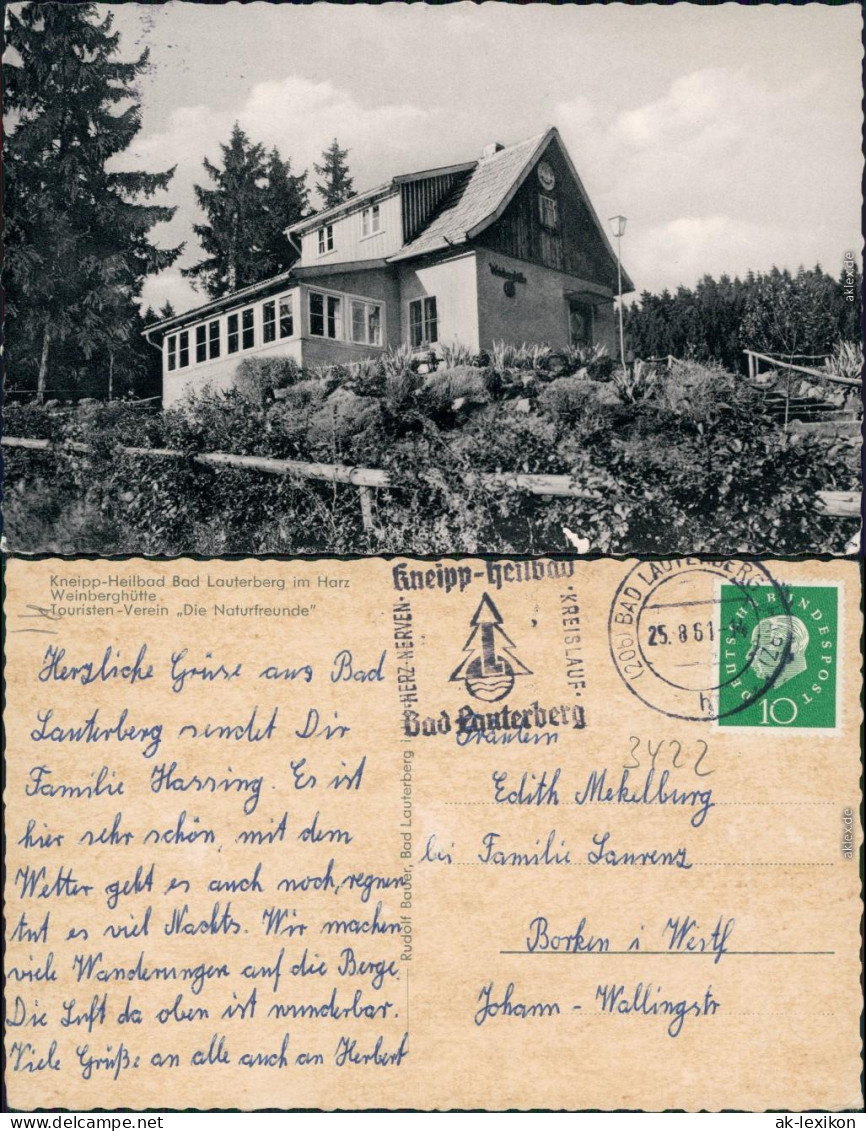 Weinberghütte
aklex.de
Kneipp-Heilbad Bad Lauterberg im Harz
Weinberghütte
Touristen-Verein „Die Naturfreunde"
Herzliche Grüse aus Bad
Lauterberg sendet Dir
Familie Hassing. Es ist
hier sehr schön, mit dem
Wetter geht es auch noch, regnen
tut es viel Nachts. Wir machen
viele Wanderungen auf die Berge.
Die Luft da oben ist wunderbar.
Viele Grüße an alle auch an Herbert
Rudolf Bauer, Bad Lauterberg
Kneipp-Heilbad
HERZ-NERVEN-
KREISLAUF-
Bad Lauterberg
(20b) BAD LAUTERBERG
25. 8 61
h
DEUTSCHE BUNDESPOST
10
3422
Fräulein
Edith Mekelburg
bei Familie Laurenz
Borken i Westf
Johann-Wallingstr
aklex.de
www.delcampe.net
ak-lexikon